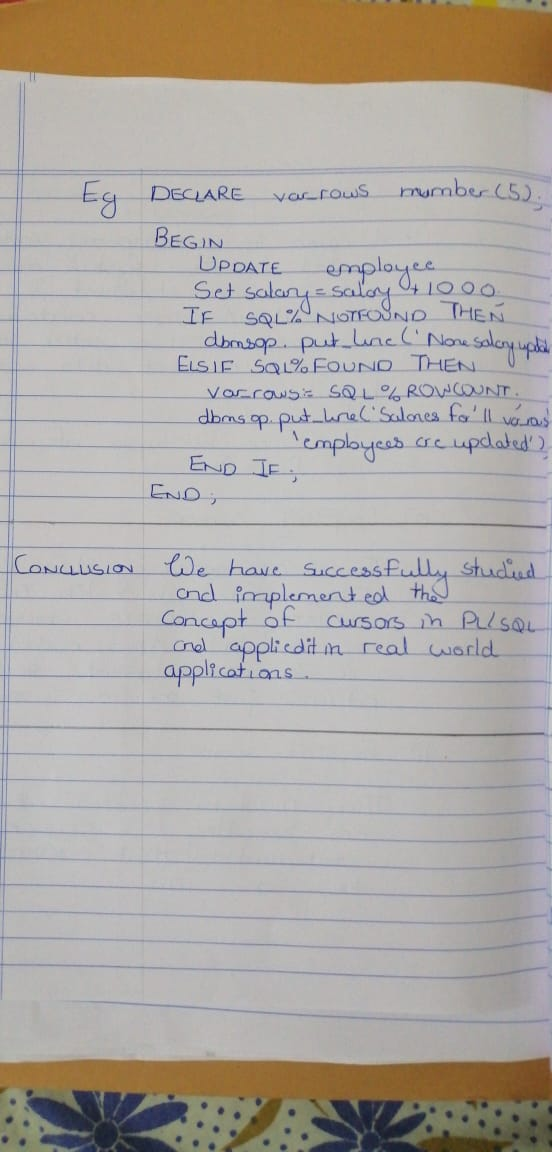 Eg DECLARE var_rows number(5);
BEGIN
UPDATE employee
Set salary = salary + 1000
IF SQL%NOTFOUND THEN
dbmsop. put_line('None salary upda
ELSIF SQL%FOUND THEN
var_rows:= SQL%ROWCOUNT.
dbms op. put_line('Salaries for'||
'employees are updated')
END IF;
END;
CONCLUSION We have successfully studied
and implemented the
concept of cursors in PL/SQL
and applied it in real world
applications.